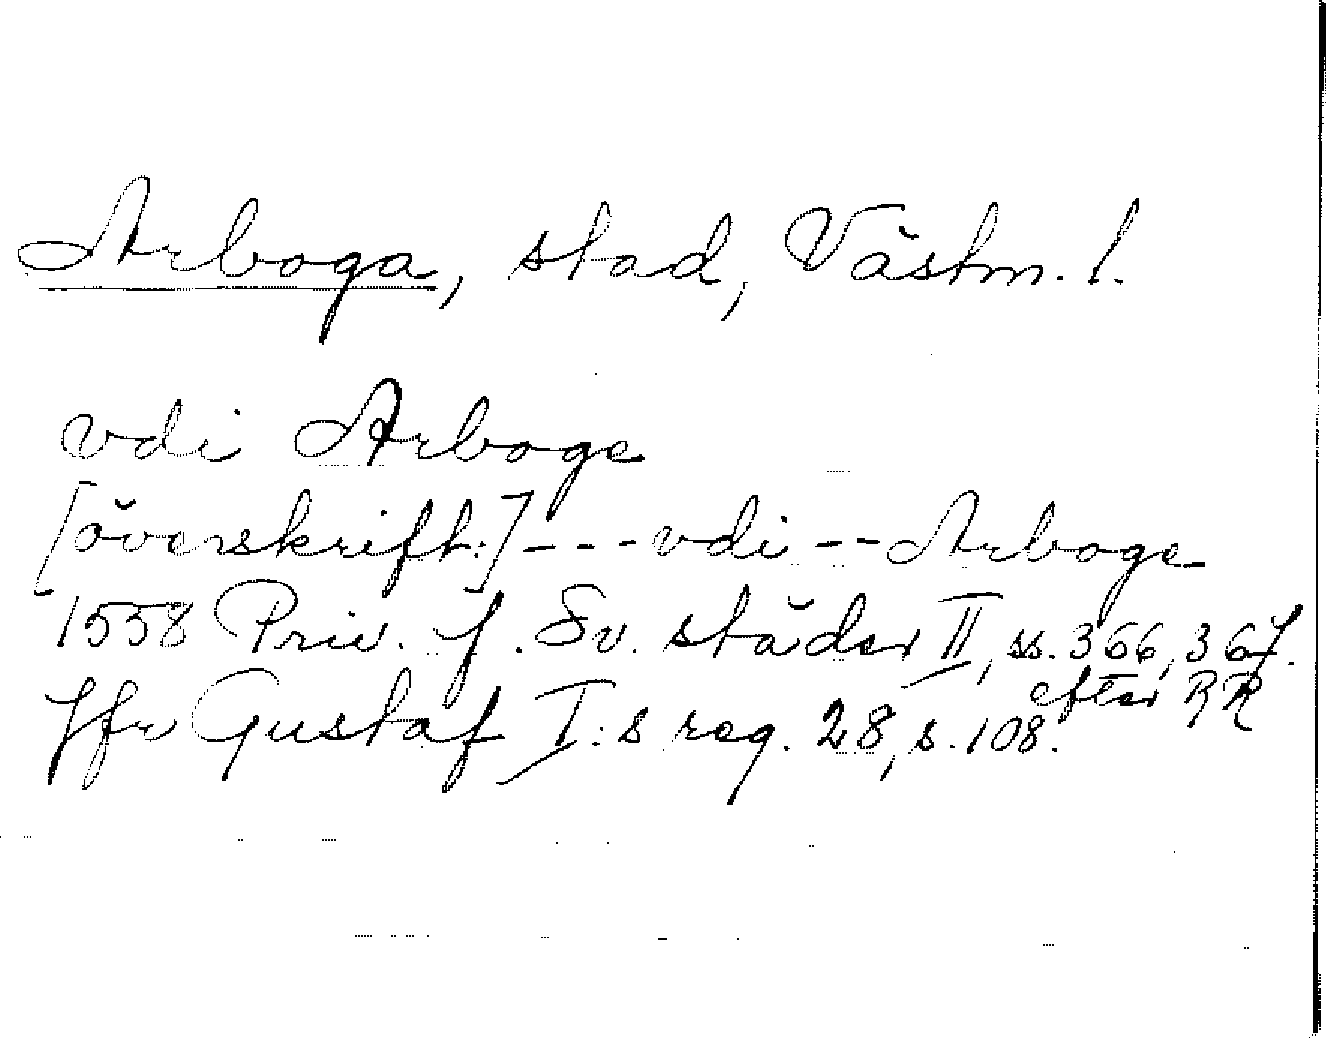 Arboga, stad, Västm. l.
vdi Arboge
[överskrift:] - - - vdi - - Arboge
1558 Priv. f. Sv. städer II, ss. 366, 367.
efter RR
Jfr Gustaf I:s reg. 28, s. 108.